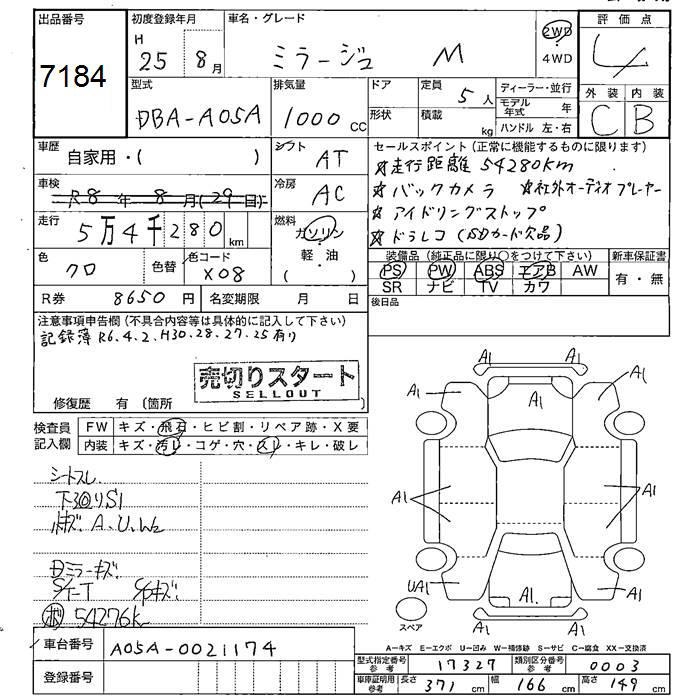 出品番号 初度登録年月 車名・グレード 評価点
7184 H 25 8月 ミラージュ M 2WD・4WD 4
型式 排気量 ドア 定員 ディーラー・並行 外装 内装
DBA-A05A 1000 CC 5人 モデル年式 年 C B
形状 積載 kg ハンドル 左・右
車歴 自家用・( ) シフト AT
セールスポイント(正常に機能するものに限ります)
☆走行距離 54280km
車検 R8年 8月(29日) 冷房 AC
☆バックカメラ ☆社外オーディオプレーヤー
走行 5万4千280km 燃料 ガソリン・軽・油( )
☆アイドリングストップ
☆ドラレコ(SDカード欠品)
色 クロ 色替 色コード X08
装備品(純正品に限り○をつけて下さい) 新車保証書
PS PW ABS エアB AW 有・無
SR ナビ TV カワ
R券 8650円 名変期限 月 日
後日品
注意事項申告欄(不具合内容等は具体的に記入して下さい)
記録簿R6.4.2.H30.28.27.25有り
売切りスタート
SELLOUT
修復歴 有(箇所 )
検査員記入欄 FW キズ・飛石・ヒビ割・リペア跡・X要
内装 キズ・汚レ・コゲ・穴・スレ・キレ・破レ
シートスレ
下回りS1
A.U.W2
ミラーキズ
54276k
車台番号 A05A-0021174
登録番号
A1 A1
A1 A1 A1 A1
A1 A1
UA1 A1. A1
A1 A1
スペア
A―キズ E―エクボ U―凹み W―補修跡 S―サビ C―腐食 XX―交換済
型式指定番号参考 17327 類別区分番号参考 0003
車庫証明用参考 長さ 371cm 幅 166cm 高さ 149cm